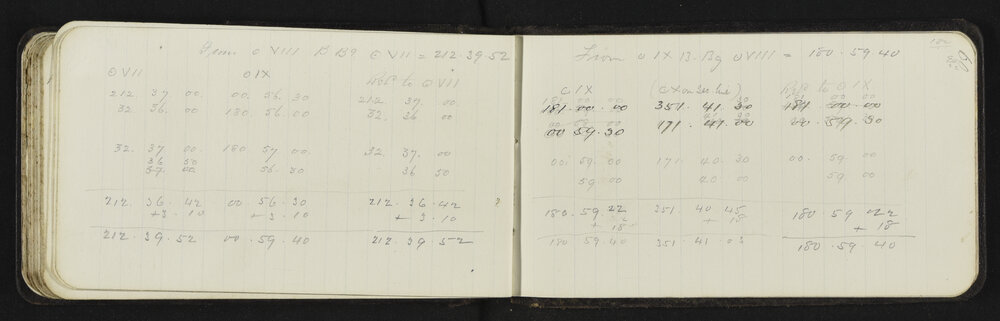 From O VIII B Bg O VII = 212.39.52
O VII O IX Rep to O VII
212. 37. 00. 00. 56. 30 212. 37. 00.
32 36. 00 180. 56. 00 32. 36. 00
32. 37 00. 180. 57 00 32. 37. 00
36 50 36 50
37. 00 56. 30
212. 36. 42 00. 56. 30 212. 36. 42
+3. 10 +3. 10 + 3. 10
212. 39. 52 00. 59. 40 212. 39. 52
From O IX B. Bg O VIII = 180. 59. 40
O IX Rep to O IX
181. 00. 00 351. 41. 30 181 00. 00
00 59. 30 171. 41. 00
00. 59. 00 171 40. 30 00. 59 00
59. 00 40. 00 59 00
180. 59. 22 351. 40 45 180. 59 22
+ 18 + 18 + 18
180 59. 40 351. 41 03 180. 59. 40